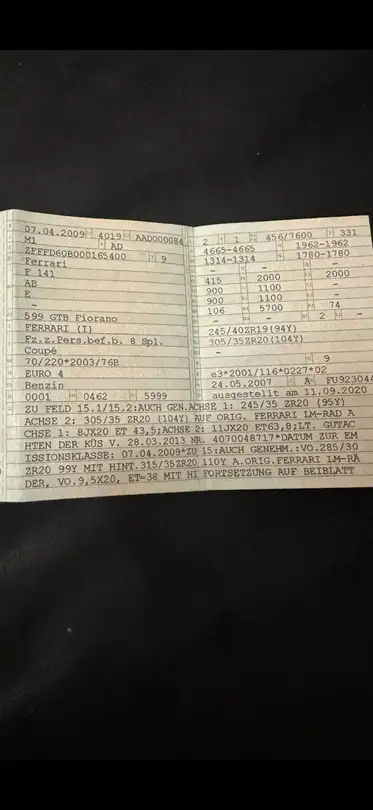 07.04.2009 4019 AAD000084
M1 AD
ZFFFD60B000165400 9
Ferrari
F 141
AB
E
-
599 GTB Fiorano
FERRARI (I)
Fz.z.Pers.bef.b. 8 Spl.
Coupé
70/220*2003/76B
EURO 4
Benzin
0001 0462 5999
2 1 456/7600 331
4665-4665 1962-1962
1314-1314 1780-1780
- - -
415 2000 2000
900 1100 -
900 1100 -
106 5700 74
- - 2 -
245/40ZR19(94Y)
305/35ZR20(104Y)
-
9
e3*2001/116*0227*02
24.05.2007 A FU92304
ausgestellt am 11.09.2020
ZU FELD 15.1/15.2:AUCH GEN.ACHSE 1: 245/35 ZR20 (95Y)
ACHSE 2: 305/35 ZR20 (104Y) AUF ORIG. FERRARI LM-RAD A
CHSE 1: 8JX20 ET 43,5;ACHSE 2: 11JX20 ET63,8;LT. GUTAC
HTEN DER KÜS V, 28.03.2013 NR. 4070048717*DATUM ZUR EM
ISSIONSKLASSE: 07.04.2009*ZU 15:AUCH GENEHM.:VO.285/30
ZR20 99Y MIT HINT.315/35ZR20 110Y A.ORIG.FERRARI LM-RÄ
DER, VO.9,5X20, ET=38 MIT HI FORTSETZUNG AUF BEIBLATT